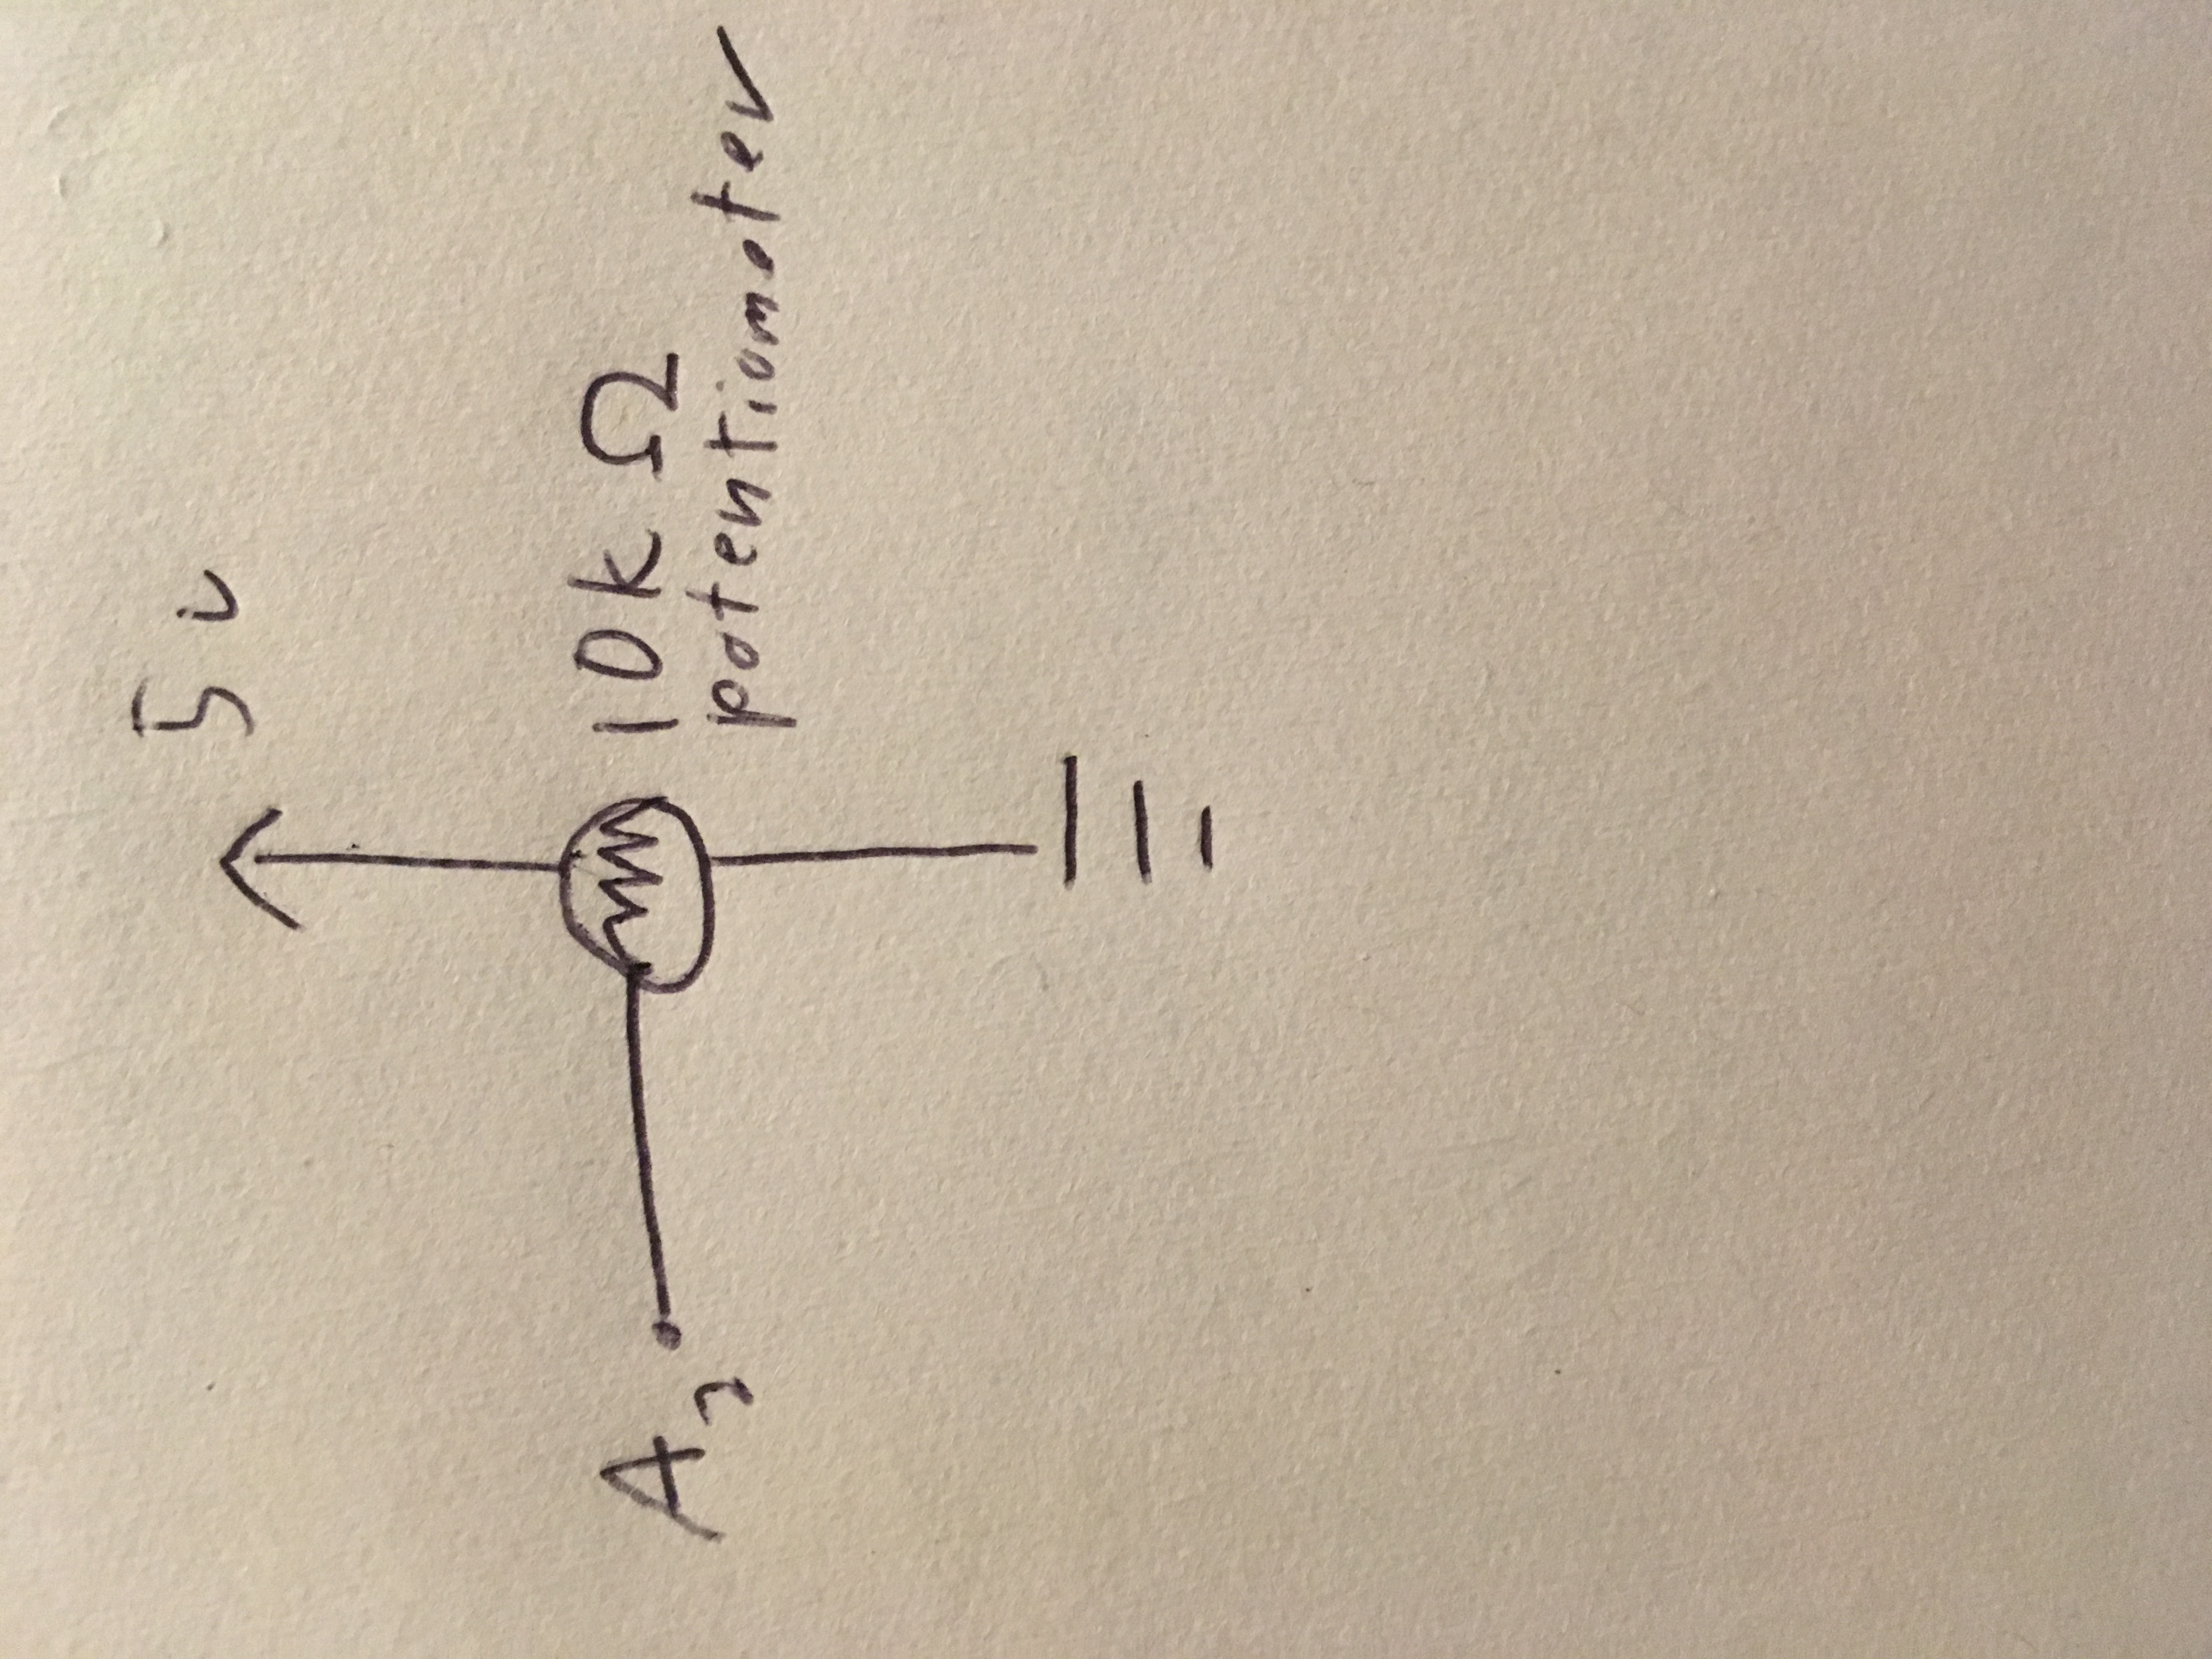 5v
A2
10k Ω
potentiometer